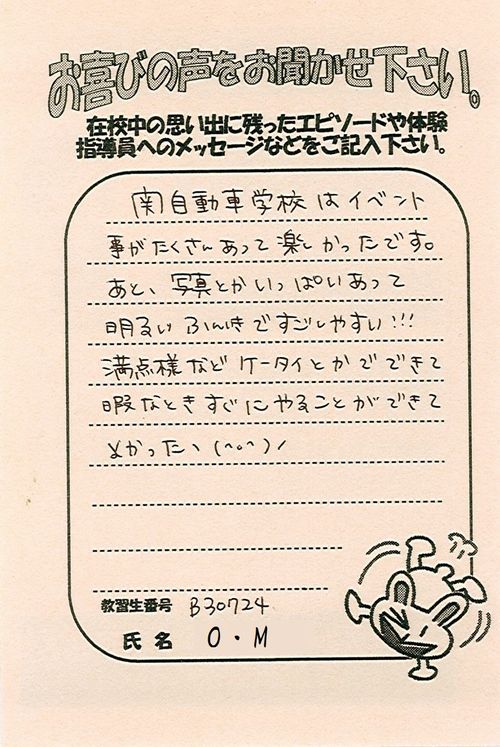 お喜びの声をお聞かせ下さい。
在校中の思い出に残ったエピソードや体験
指導員へのメッセージなどをご記入下さい。
関自動車学校はイベント
事がたくさんあって楽しかったです。
あと、写真とかいっぱいあって
明るいふんいきですごしやすい!!!
満点様などケータイとかでできて
暇なときすぐにやることができて
よかったヽ(^o^)ノ
教習生番号 B30724
氏名 O・M